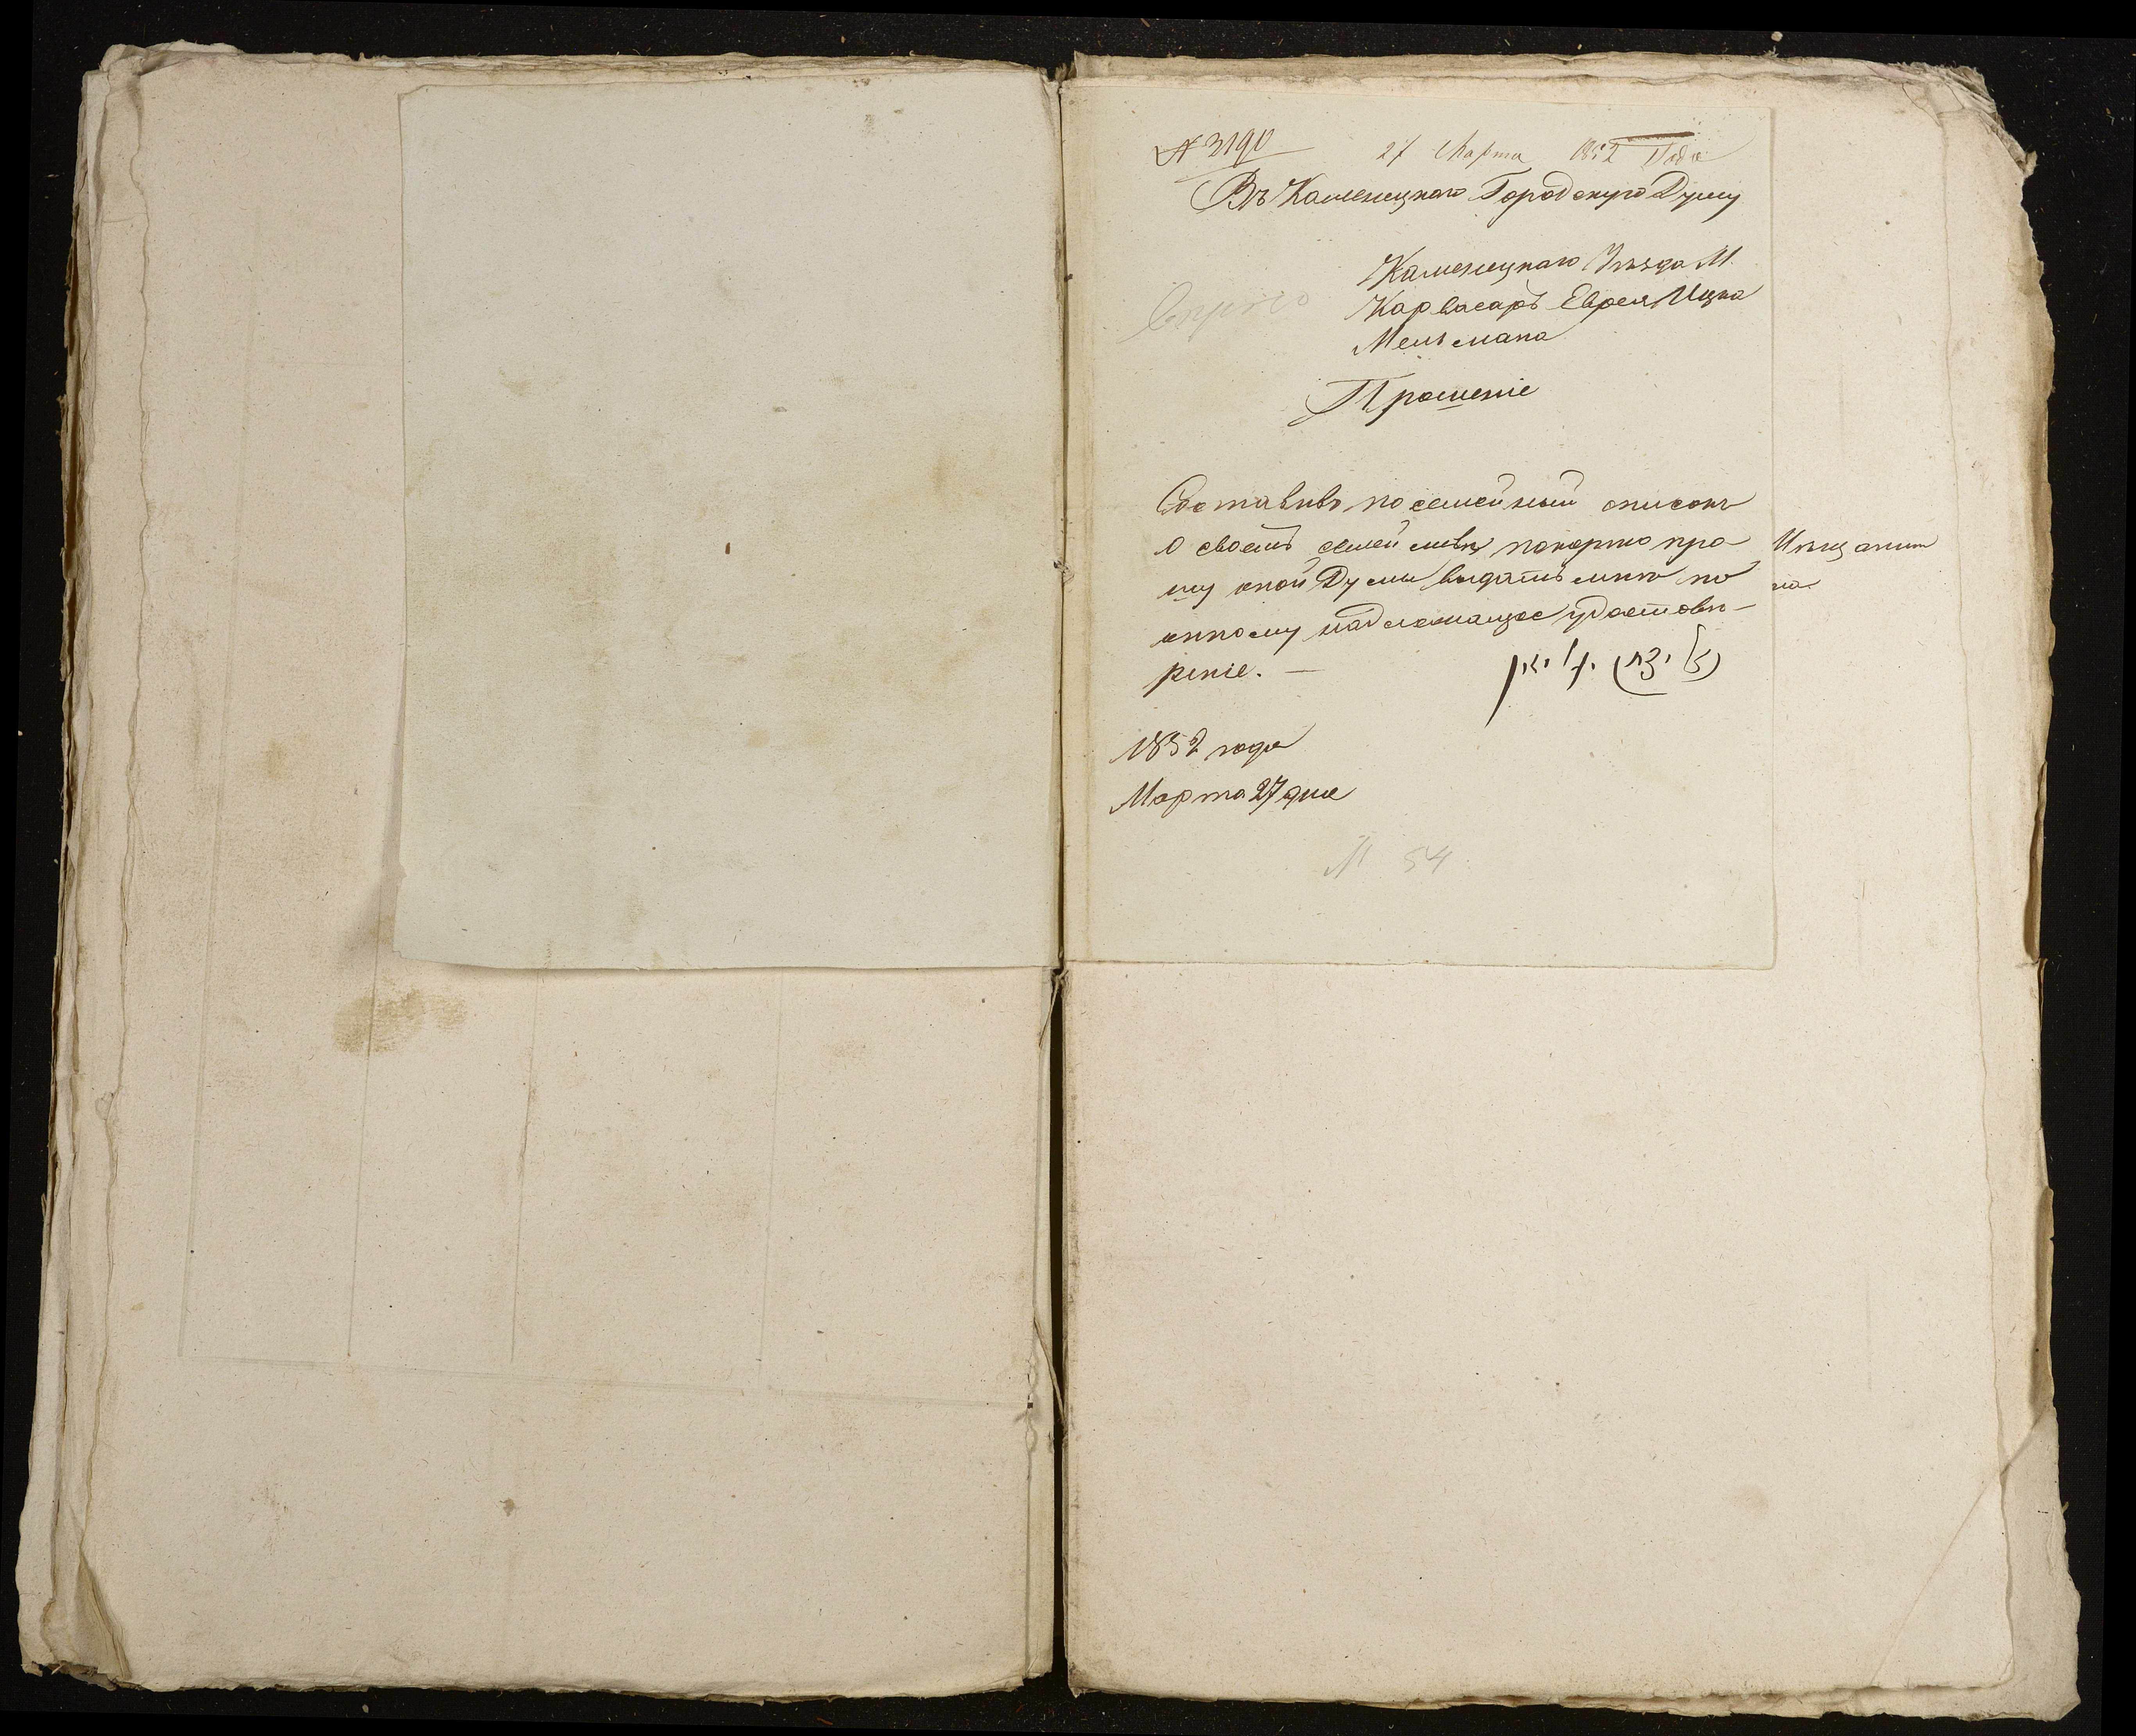 № 3190 27 Марта 1852 Года
Въ Каменецкую Городскую Думу
Каменецкаго Уѣзда М.
Карвасаръ Еврея Ицка
Мельмана
Прошеніе
Составивъ посемейный списокъ
о своемъ семействѣ, покорно про
шу оной Думы выдать мнѣ по
оному надлежащее удостовѣ-
реніе. —
1852 года
Марта 27 дня
№ 54